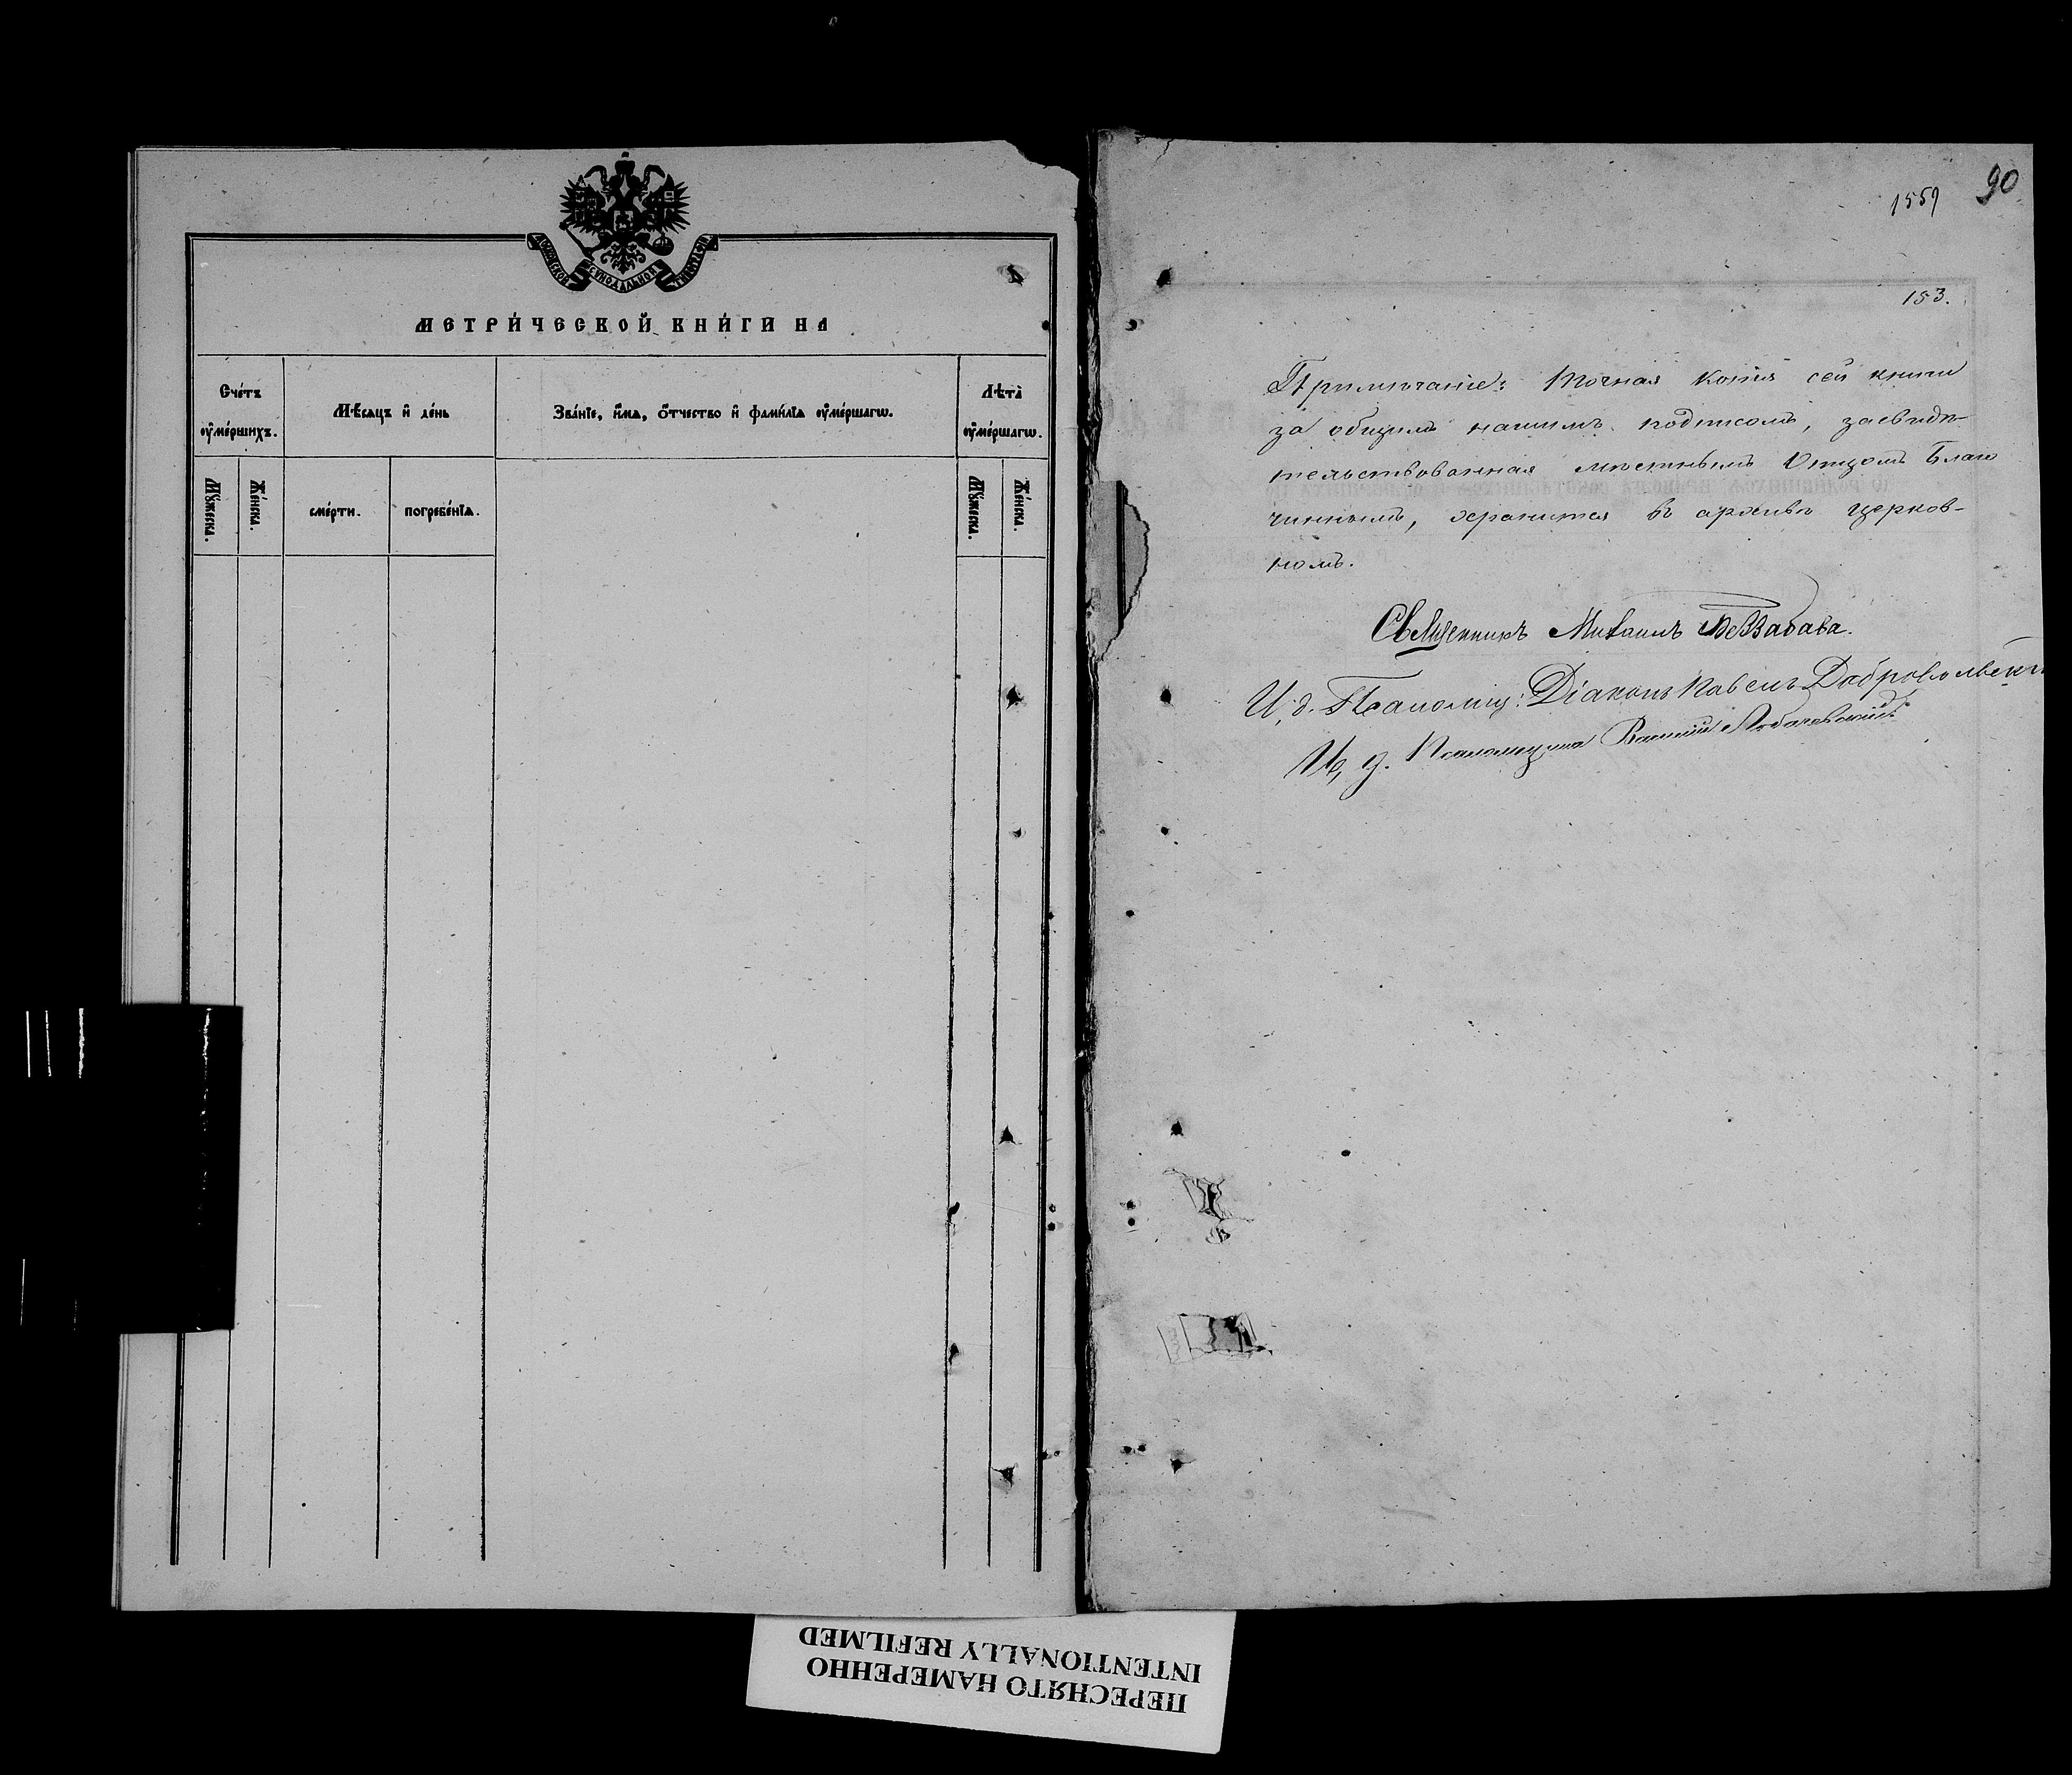 МОСКОВСКОЙ СѴНОДАЛЬНОЙ ТИПОГРАФІИ
МЕТРИ́ЧЕСКОЙ КНИ́ГИ НА
Сче́тъ
ᲂу҆ме́ршихъ.
Мѣ́сяцъ и҆ де́нь
Зва́нїе, и҆́мѧ, ѻ҆́тчество и҆ фами́лїѧ ᲂу҆ме́ршагѡ.
Лѣ́та
ᲂу҆ме́ршагѡ.
Мꙋ́жеска.
Же́нска.
сме́рти.
погребе́нїѧ.
Мꙋ́жеска.
Же́нска.
1559
90
153.
Примѣчаніе: Точная копія сей книги
за общимъ нашимъ подписомъ, засвидѣ-
тельствованная мѣстнымъ Отцомъ Благо
чиннымъ, хранится въ архивѣ церков-
номъ.
Священникъ Михаилъ
И. д. Псаломщ: Діаконъ Павелъ Добровольскій
И, д. Псаломщика Василій
ПЕРЕСНЯТО НАМЕРЕННО
INTENTIONALLY REFILMED